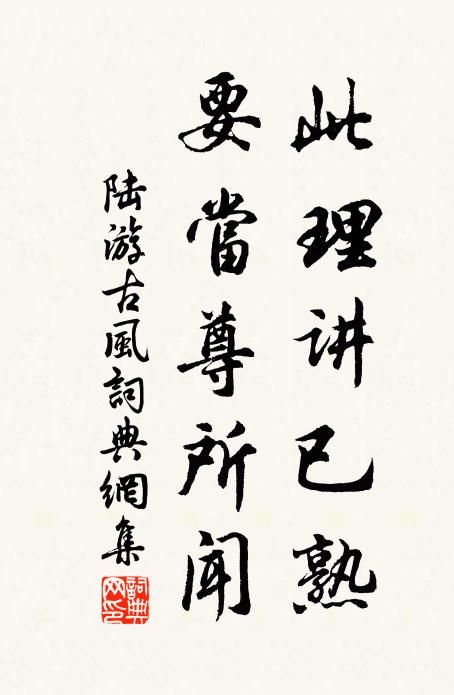 此理讲已熟
要當尊所聞
陆游古風詞典網集
詞典网印